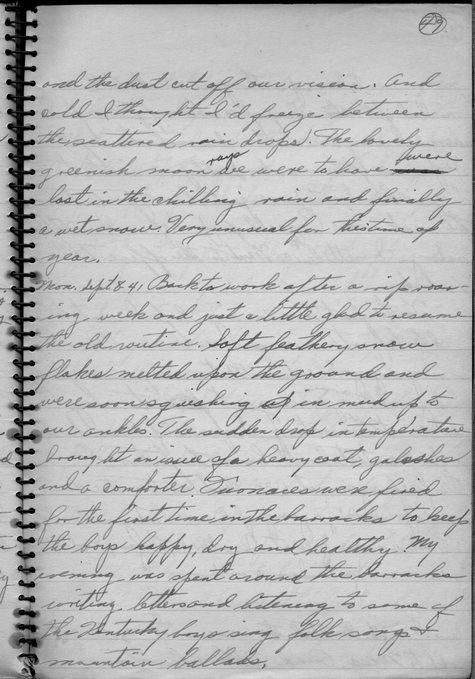 49
and the dust cut off our vision. And
cold I thought I'd freeze between
the scattered rain drops! The lovely
greenish moon rays we were to have were
lost in the chilling rain and finally
a wet snow. Very unusual for this time of
year.
Mon. Sept 8 41. Back to work after a rip roar-
ing week and just a little glad to resume
the old routine. Soft feathery snow
flakes melted upon the ground and
were soon squishing in mud up to
our ankles. The sudden drop in temperature
brought an issue of a heavy coat, galoshes
and a comforter. Furnaces were fired
for the first time in the barracks to keep
the boys happy, dry and healthy. My
evening was spent around the barracks
writing letters and listening to some of
the Kentucky boys sing folk songs &
mountain ballads.